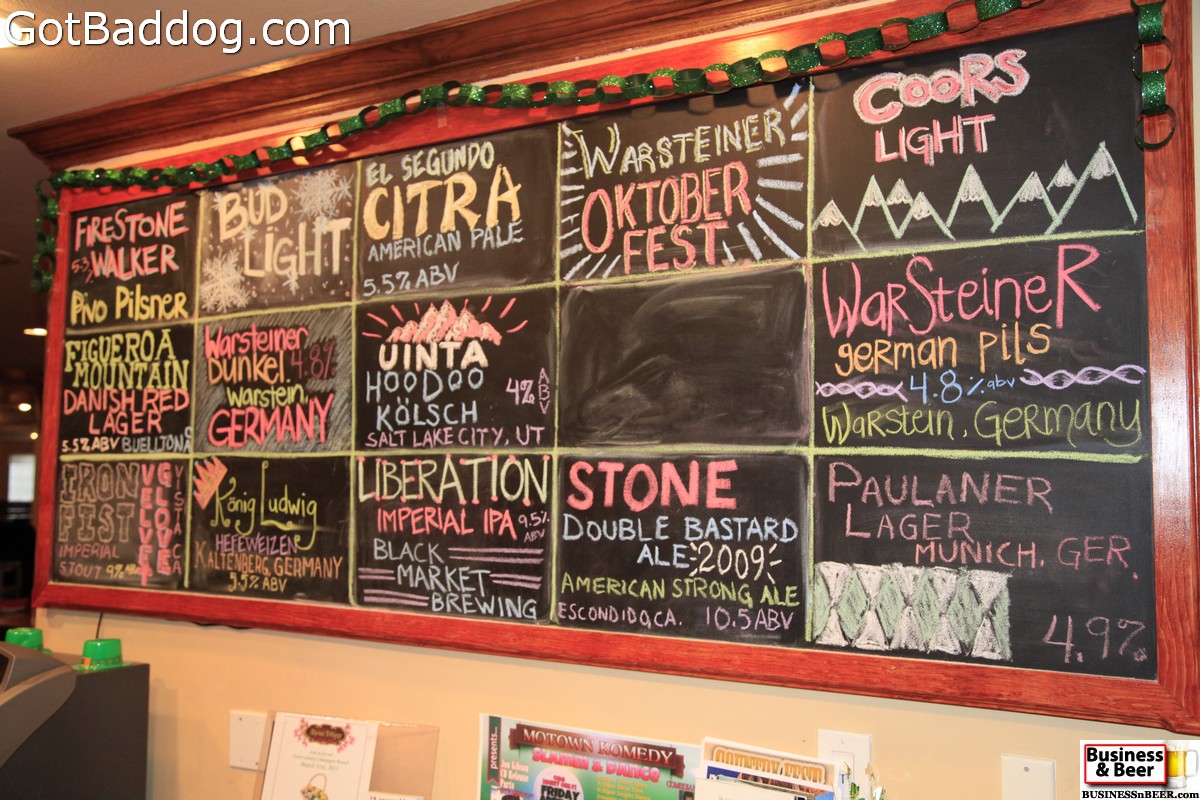 GotBaddog.com
FIRESTONE
5.3%
WALKER
PIVO PILSNER
BUD
LIGHT
EL SEGUNDO
CITRA
AMERICAN PALE
5.5% ABV
WARSTEINER
OKTOBER
FEST
COORS
LIGHT
FIGUEROA
MOUNTAIN
DANISH RED
LAGER
5.5% ABV BUELLTON CA
Warsteiner
Dunkel 4.8%
warstein,
GERMANY
UINTA
HOODOO
KÖLSCH
4% ABV
SALT LAKE CITY, UT
WarSteineR
german pils
4.8% abv
Warstein, Germany
IRON
FIST
VELVET
GLOVE
VISTA CA
IMPERIAL
STOUT 9%
König Ludwig
HEFEWEIZEN
KALTENBERG, GERMANY
5.5% ABV
LIBERATION
IMPERIAL IPA 9.5% ABV
BLACK
MARKET
BREWING
STONE
DOUBLE BASTARD
ALE 2009
AMERICAN STRONG ALE
ESCONDIDO, CA. 10.5 ABV
PAULANER
LAGER
MUNICH, GER.
4.9%
presents..
MOTOWN KOMEDY
SLAMM & DANCE
FRIDAY
COUNTRY FEST
Business
& Beer
BUSINESSnBEER.com